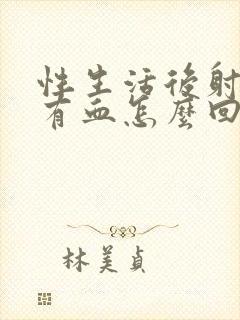 性生活後射
有血怎麼回
林美貞